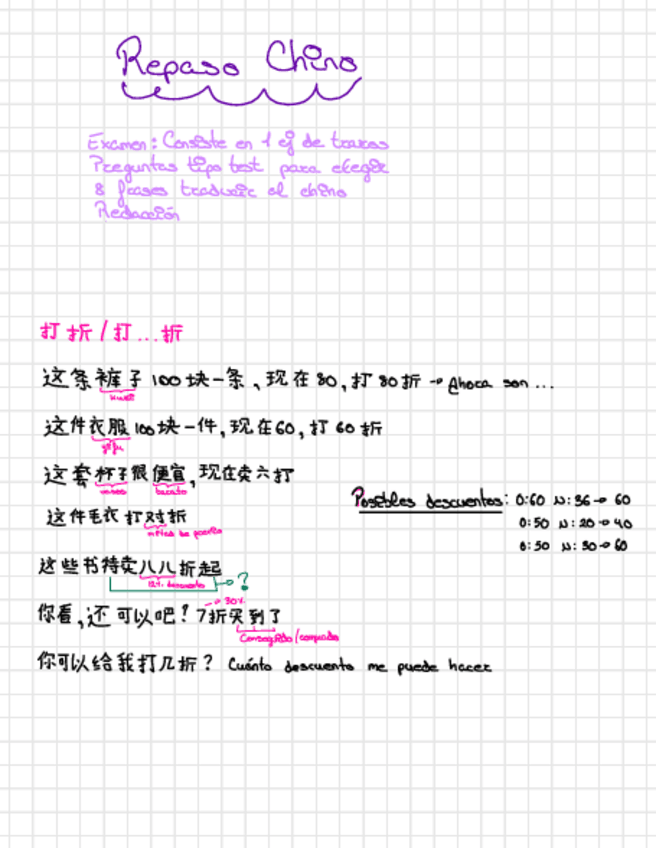 Repaso Chino
Examen: Consiste en 1 ej de trazos
Preguntas tipo test para elegir
8 frases traducir al chino
Redacción
打折/打...折
这条裤子100块一条、现在80,打80折 → Ahora son ...
这件衣服100块一件,现在60,打60折
yīfu
这套杯子很便宜,现在卖六打
vasos barato
Posibles descuentos: O:60 N:36 → 60
这件毛衣打对折
O:50 N:20 → 40
mitad de precio
O:50 N:30 → 60
这些书特卖八八折起
12% descuento → ?
→ 30%
你看,还可以吧?7折买到了
Conseguido/comprado
你可以给我打几折? Cuánto descuento me puede hacer